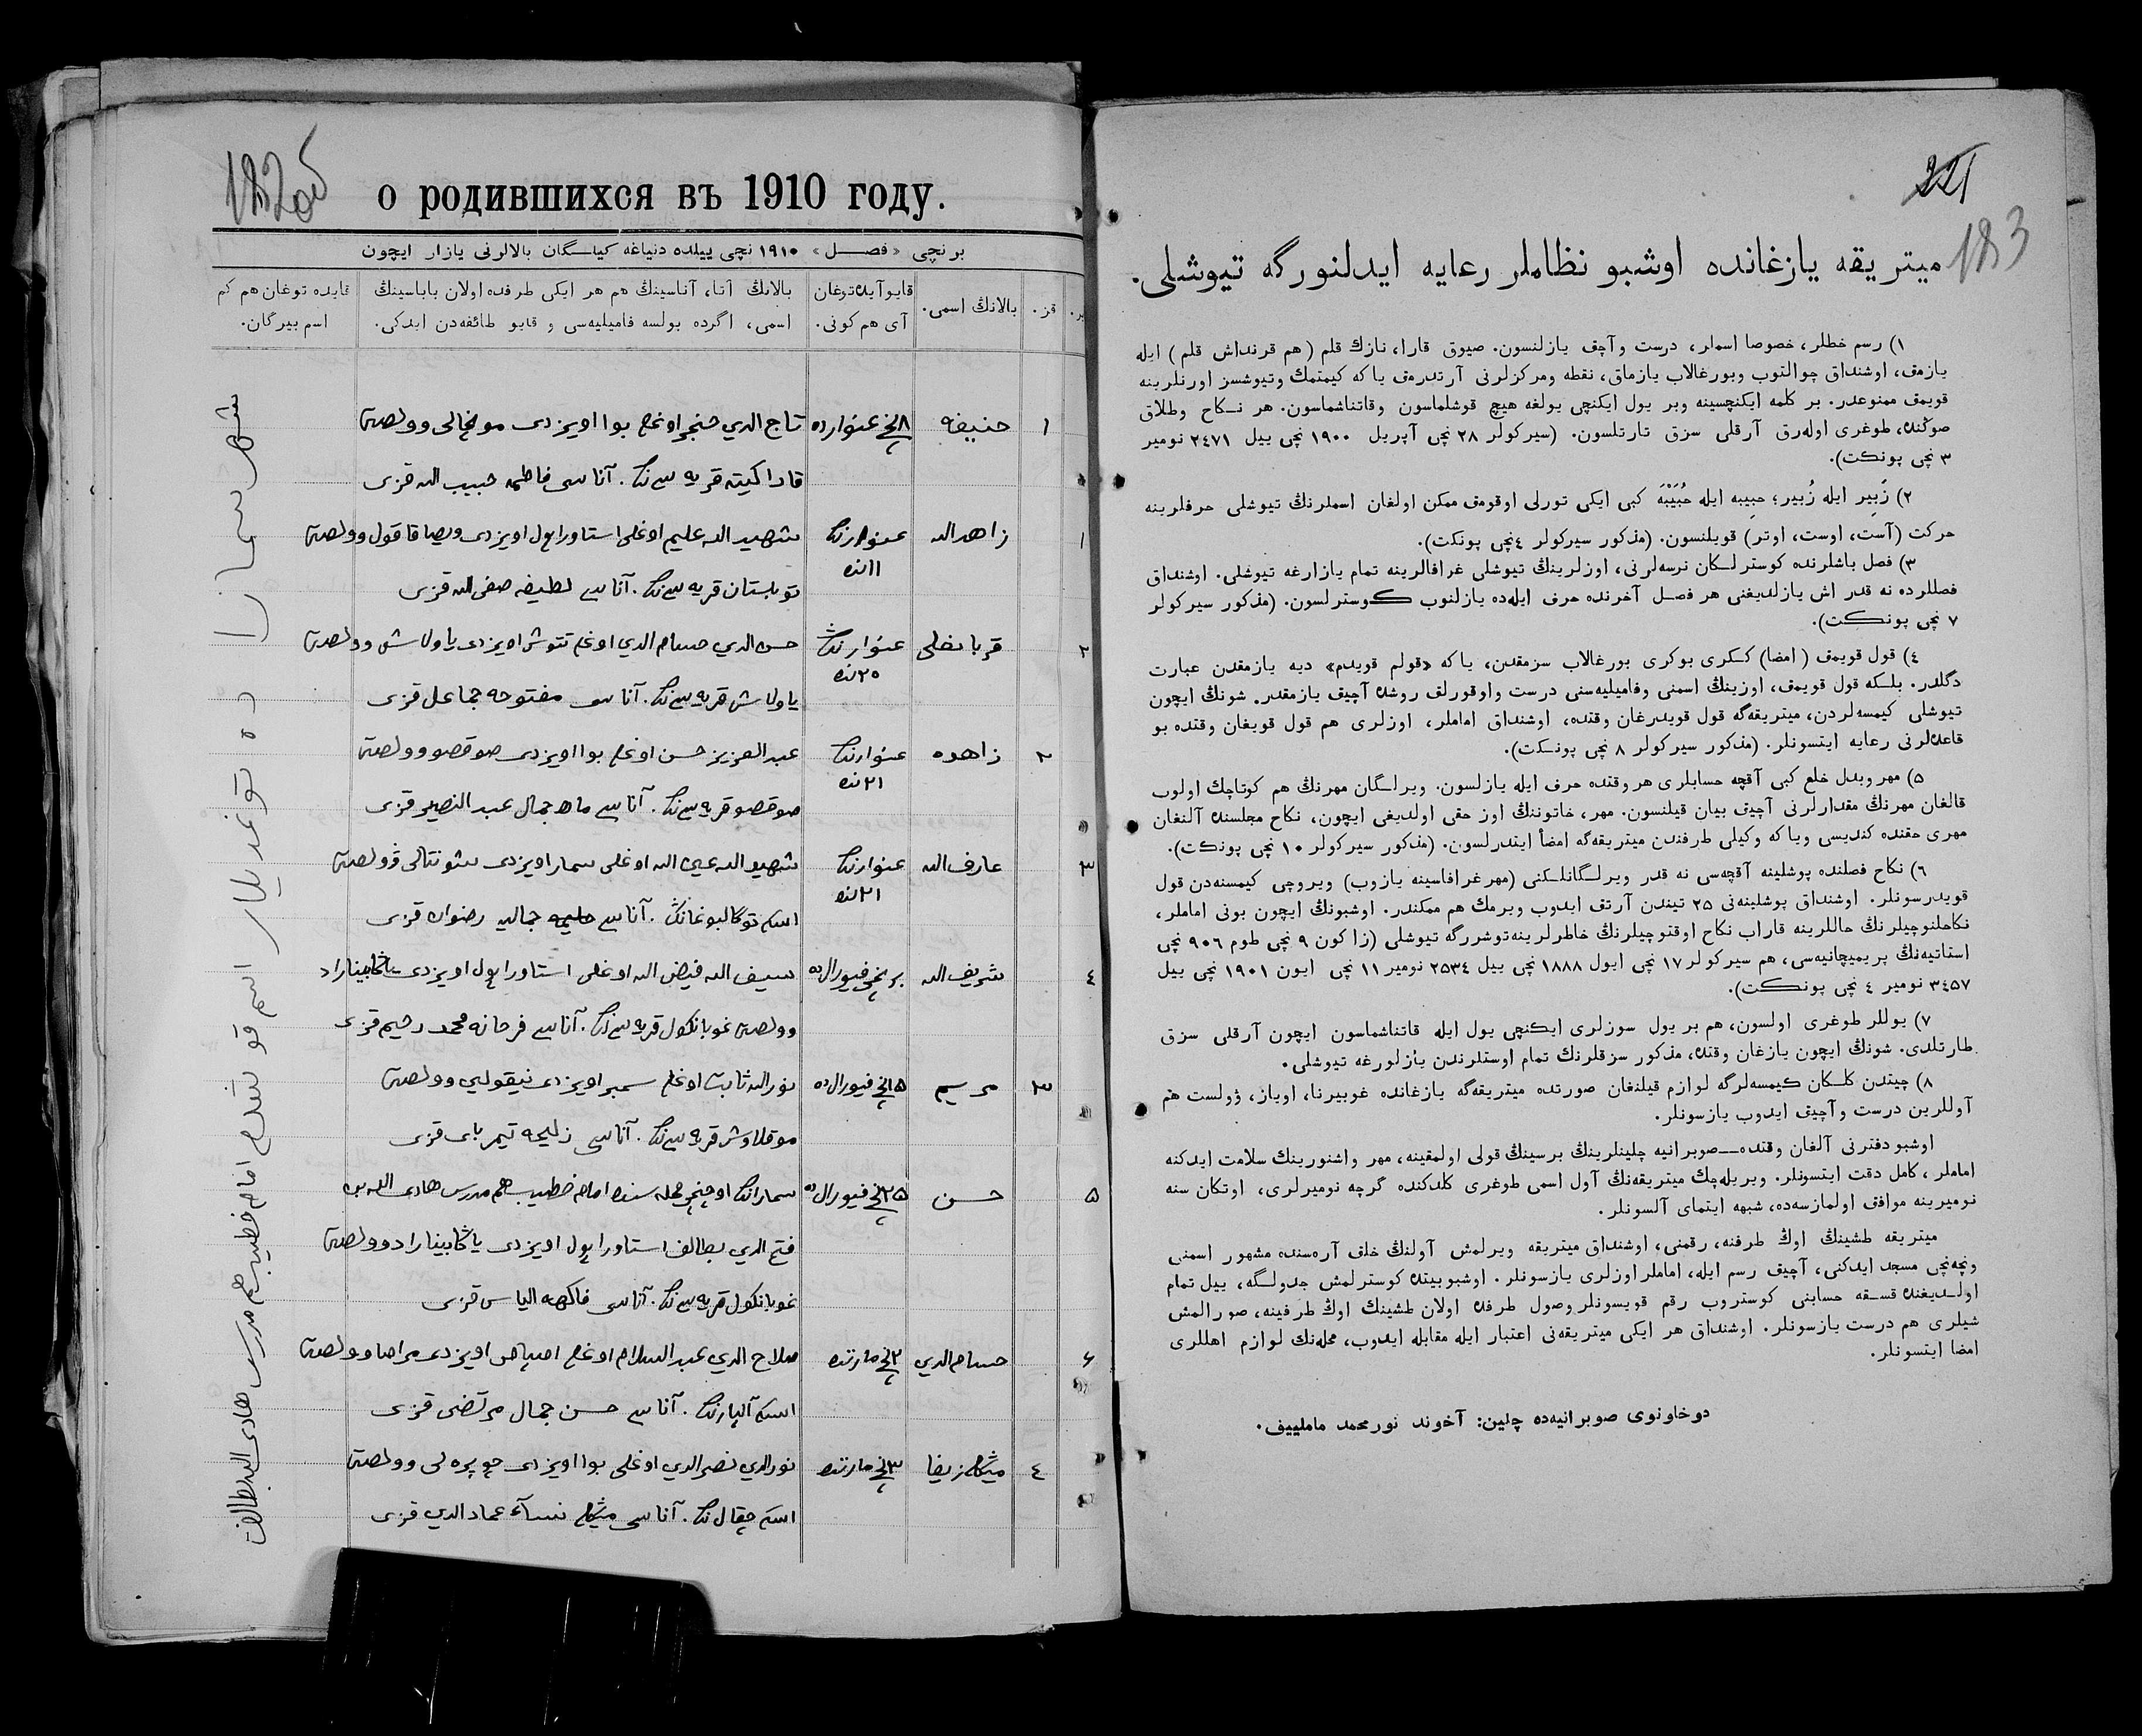 182об
о родившихся въ 1910 году.
برنچی «فصل» ۱۹۱۰ نچی ییلده دنیاغه کیلگان بالالرنی یازار ایچون
بر.
قز.
بالانڭ اسمی.
قایو آیده توغان
آی هم کونی.
بالانڭ آتا، آناسینڭ هم هر ایکی طرفده اولان باباسینڭ
اسمی، اگرده بولسه فامیلیه‌سی و قایو طائفه‌دن ایدکی.
قایده توغان هم کم
اسم بیرگان.
۱ حنیفه ۸نچی غنوارده تاج الدین اوغلی بوا اویزدی وولصتی
قریه سی‌نڭ. آناسی فاطمه حبیب الله قزی
۱ زاهدالله غنوارنڭ ۱۱نده شهید الله علیم اوغلی استاورپول اویزدی وولصتی
قریه سی‌نڭ. آناسی لطیفه صفی الله قزی
۲ قربانعلی غنوارنڭ ۲۰نده حسن الدین حسام الدین اوغلی تتوش اویزدی یاولاش وولصتی
یاولاش قریه سی‌نڭ. آناسی مفتوحه جماعل قزی
۲ زاهده غنوارنڭ ۲۱نده عبد العزیز حسن اوغلی بوا اویزدی صوقصو وولصتی
صوقصو قریه سی‌نڭ. آناسی ماه جمال عبد النصیر قزی
۳ عارف الله غنوارنڭ ۲۱نده شهید الله اوغلی سمار اویزدی شونتالی وولصتی
آناسی جمالیه رضوان قزی
۴ شریف الله برنچی فیورالده سیف الله فیض الله اوغلی استاورپول اویزدی
وولصتی غوبانکول قریه سی‌نڭ. آناسی فرحانه محمد رحیم قزی
۳ مریم ۱۵نچی فیورالده نورالله ثابت اوغلی سمبر اویزدی نیقولسکی وولصتی
قریه سی‌نڭ. آناسی زلیحه تیمربای قزی
۵ حسن ۲۵نچی فیورالده سمارانڭ اوچنچی محله سنده امام خطیب هم مدرس هادی الله بن
فتح الدین بطالف استاورپول اویزدی وولصتی
غوبانکول قریه سی‌نڭ. آناسی فاکهه الیاس قزی
۶ حسام الدین ۲نچی مارتده صلاح الدین عبد السلام اوغلی اسپاص اویزدی مراصا وولصتی
آناسی حسن جمال مرتضی قزی
۴ ۳نچی مارتده نورالدین نصر الدین اوغلی بوا اویزدی وولصتی
آناسی نساء عماد الدین قزی
شهر سماراده توغدیلار اسم قوشدم امام خطیب هم مدرس هادی الله بطالف
221
183
میتریقه یازغانده اوشبو نظاملر رعایه ایدلنورگه تیوشلی.
۱) رسم خطلر، خصوصا اسملر، درست وآچق یازلنسون. صیوق قارا، نازك قلم (هم قرنداش قلم) ایله
یازمق، اوشنداق چوالتوب وبورغالاب یازماق، نقطه ومرکزلرنی آرتدرمق یاکه کیمتمك وتیوشسز اورنلرینه
قویمق ممنوعدر. بر کلمه ایکنچسینه وبر یول ایکنچی یولغه هیچ قوشلماسون وقاتناشماسون. هر نکاح وطلاق
صوڭنده، طوغری اوله‌رق آرقلی سزق تارتلسون. (سیرکولر ۲۸ نچی آپریل ۱۹۰۰ نچی ییل ۲۴۷۱ نومیر
۳ نچی پونکت).
۲) زَبِیر ایله زُبیر؛ حبِیبه ایله حُبَیْبَه کبی ایکی تورلی اوقومق ممکن اولغان اسملرنڭ تیوشلی حرفلرینه
حرکت (آست، اوست، اوتر) قویلنسون. (مذکور سیرکولر ۴نچی پونکت).
۳) فصل باشلرنده کوسترلگان نرسه‌لرنی، اوزلرینڭ تیوشلی غرافالرینه تمام یازارغه تیوشلی. اوشنداق
فصللرده نه قدر اش یازلدیغنی هر فصل آخرنده حرف ایله‌ده یازلنوب کوسترلسون. (مذکور سیرکولر
۷ نچی پونکت).
۴) قول قویمق (امضا) ککری بوکری بورغالاب سزمقدن، یاکه «قولم قویدم» دیه یازمقدن عبارت
دگلدر. بلکه قول قویمق، اوزینڭ اسمنی وفامیلیه‌سنی درست واوقورلق روشده آچیق یازمقدر. شونڭ ایچون
تیوشلی کیمسه‌لردن، میتریقه‌گه قول قویدرغان وقتده، اوشنداق اماملر، اوزلری هم قول قویغان وقتده بو
قاعده‌لرنی رعایه ایتسونلر. (مذکور سیرکولر ۸ نچی پونکت).
۵) مهر وبدل خلع کبی آقچه حسابلری هر وقتده حرف ایله یازلسون. ویرلگان مهرنڭ هم کوتاچك اولوب
قالغان مهرنڭ مقدارلرنی آچیق بیان قیلنسون. مهر، خاتوننڭ اوز حقی اولدیغی ایچون، نکاح مجلسنده آلنغان
مهری حقنده کندیسی ویاکه وکیلی طرفندن میتریقه‌گه امضأ ایتدرلسون. (مذکور سیرکولر ۱۰ نچی پونکت).
۶) نکاح فصلنده پوشلینه آقچه‌سی نه قدر ویرلگانلکنی (مهر غرافاسینه یازوب) ویروچی کیمسنه‌دن قول
قویدرسونلر. اوشنداق پوشلینه‌نی ۲۵ تیندن آرتق ایدوب ویرمك هم ممکندر. اوشبونڭ ایچون بونی اماملر،
نکاحلنوچیلرنڭ حاللرینه قاراب نکاح اوقتوچیلرنڭ خاطرلرینه توشررگه تیوشلی (زاکون ۹ نچی طوم ۹۰۶ نچی
استاتیه‌نڭ پریمیچانیه‌سی، هم سیرکولر ۱۷ نچی ایول ۱۸۸۸ نچی ییل ۲۵۳۴ نومیر ۱۱ نچی ایون ۱۹۰۱ نچی ییل
۳۴۵۷ نومیر ۴ نچی پونکت).
۷) یوللر طوغری اولسون، هم بر یول سوزلری ایکنچی یول ایله قاتناشماسون ایچون آرقلی سزق
طارتلدی. شونڭ ایچون یازغان وقتده، مذکور سزقلرنڭ تمام اوستلرندن یازلورغه تیوشلی.
۸) چیتدن کلگان کیمسه‌لرگه لوازم قیلنغان صورتده میتریقه‌گه یازغانده غوبیرنا، اویاز، ڤولست هم
آوللرین درست وآچیق ایدوب یازسونلر.
اوشبو دفترنی آلغان وقتده—صوبرانیه چلینلرینڭ برسینڭ قولی اولمقینه، مهر واشنورینڭ سلامت ایدکنه
اماملر، کامل دقت ایتسونلر. ویریله‌چك میتریقه‌نڭ آول اسمی طوغری کلدکنده گرچه نومیرلری، اوتکان سنه
نومیرینه موافق اولمازسه‌ده، شبهه ایتمای آلسونلر.
میتریقه طشینڭ اوڭ طرفنه، رقمنی، اوشنداق میتریقه ویرلمش آولنڭ خلق آره‌سنده مشهور اسمنی
ونچه‌نچی مسجد ایدکنی، آچیق رسم ایله، اماملر اوزلری یازسونلر. اوشبو بیتده کوسترلمش جدولگه، ییل تمام
اولدیغنده قسقه حسابنی کوستروب رقم قویسونلر وصول طرفده اولان طشینڭ اوڭ طرفینه، صورالمش
شیلری هم درست یازسونلر. اوشنداق هر ایکی میتریقه‌نی اعتبار ایله مقابله ایدوب، محله‌نڭ لوازم اهللری
امضا ایتسونلر.
دوخاونوی صوبرانیه‌ده چلین: آخوند نورمحمد مامليیف.